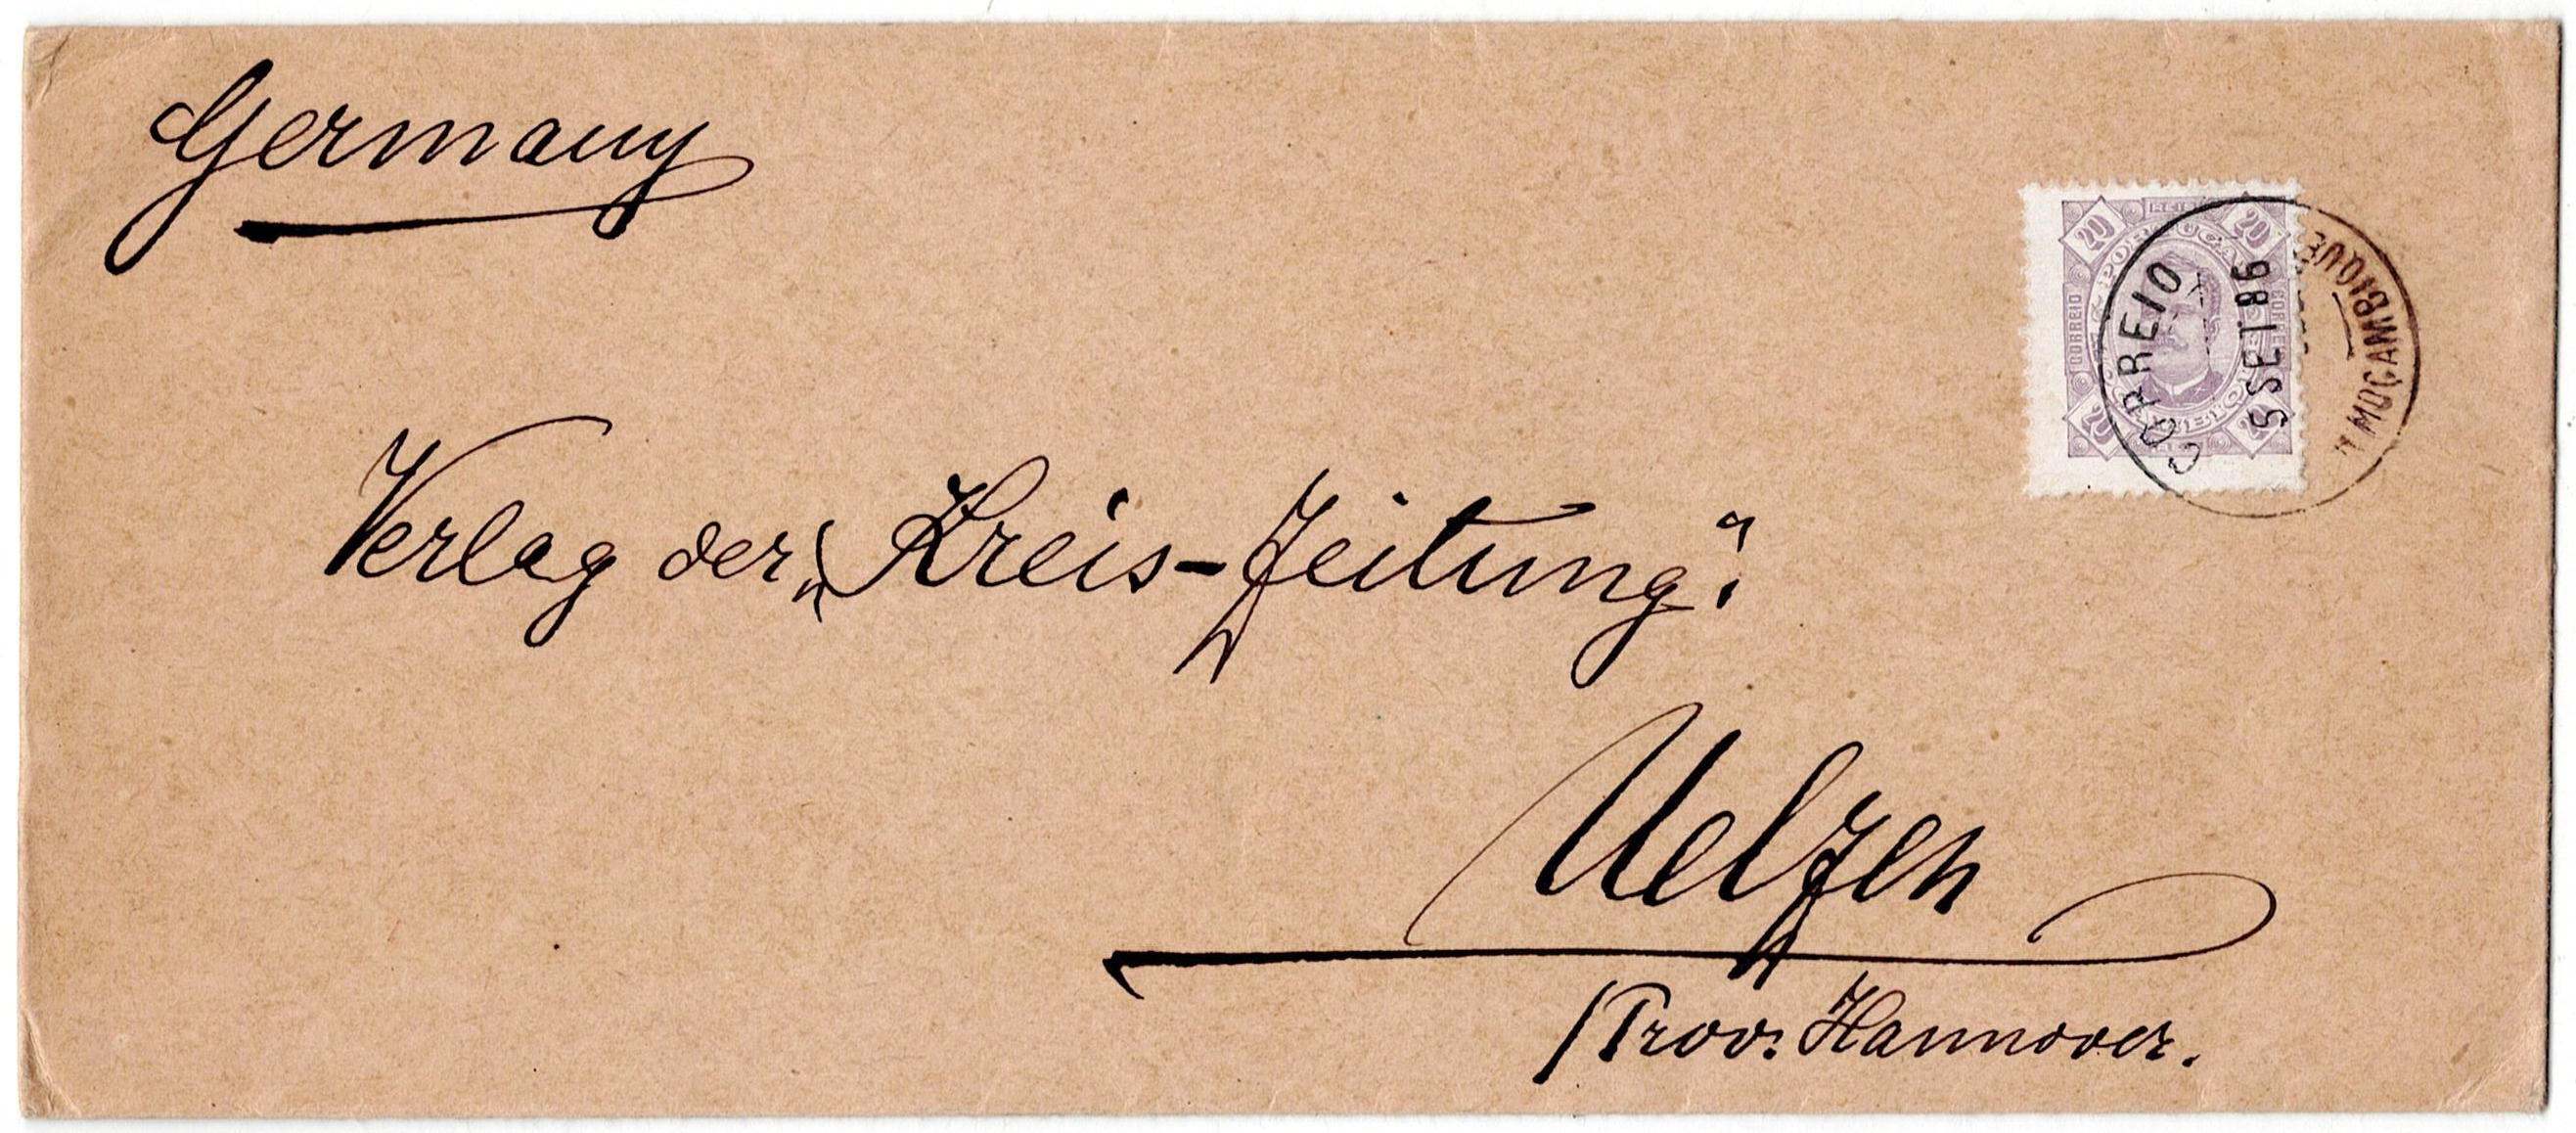 Germany
20 REIS 20
PORTUGAL
CORREIO
CORREIO
20
CORREIO
5 SET 86
MOÇAMBIQUE
Verlag der „Kreis-Zeitung“.
Uelzen
/Prov. Hannover.